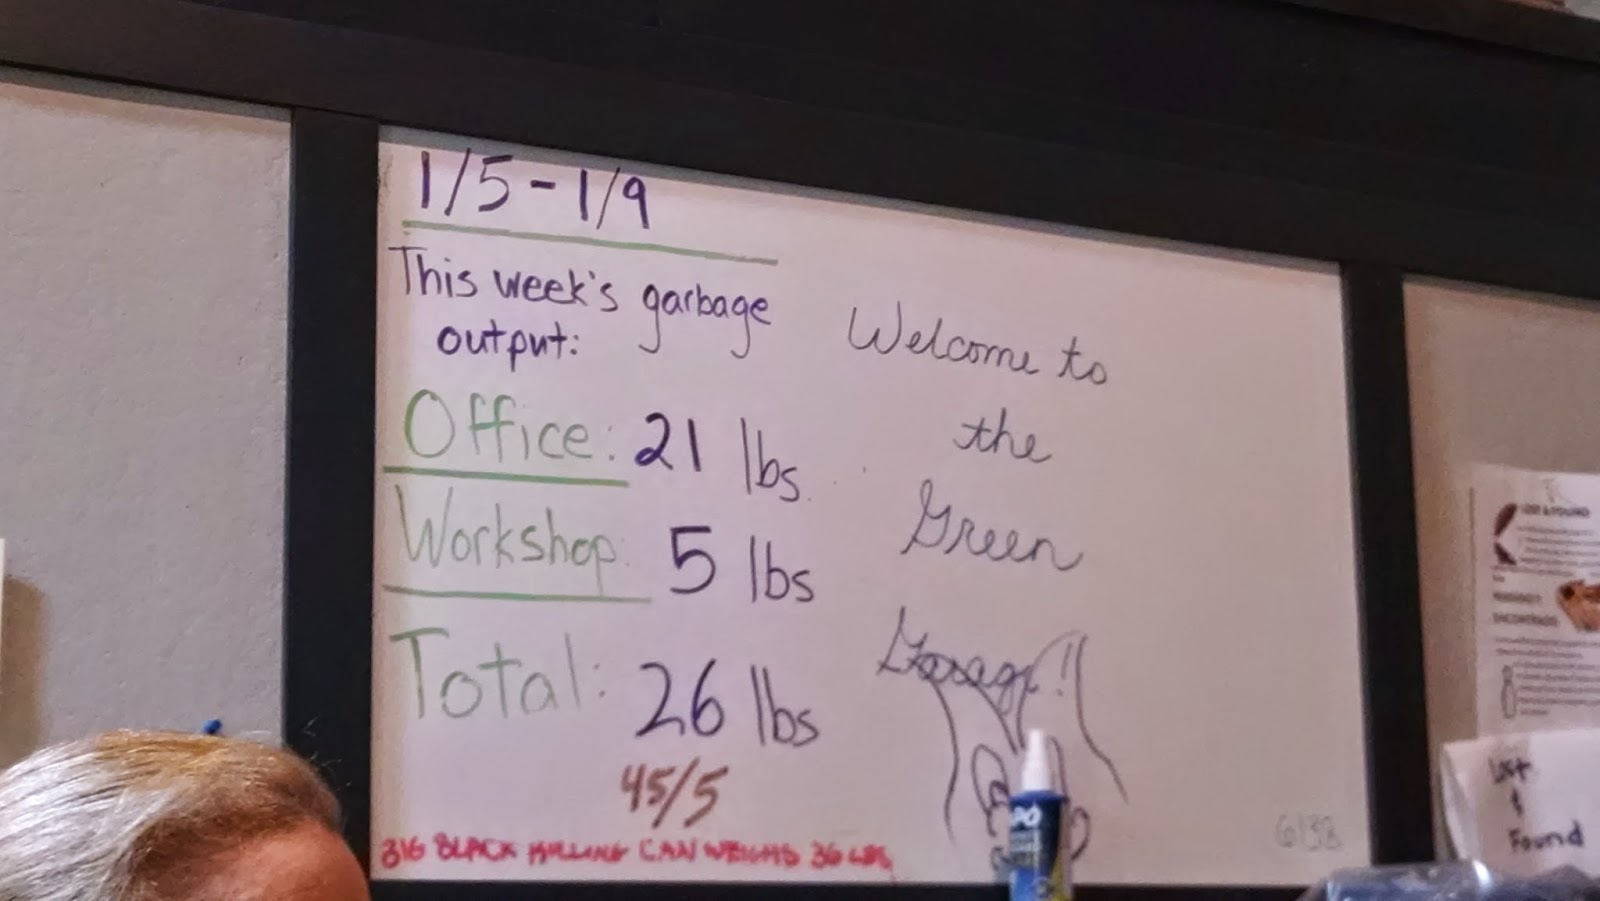 1/5 - 1/9
This week's garbage
output:
Office: 21 lbs
Workshop: 5 lbs
Total: 26 lbs
45/5
BLACK CAN WEIGHS 36 LBS
Welcome to
the
Green
Garage!!
LOST & FOUND
Lost
&
Found